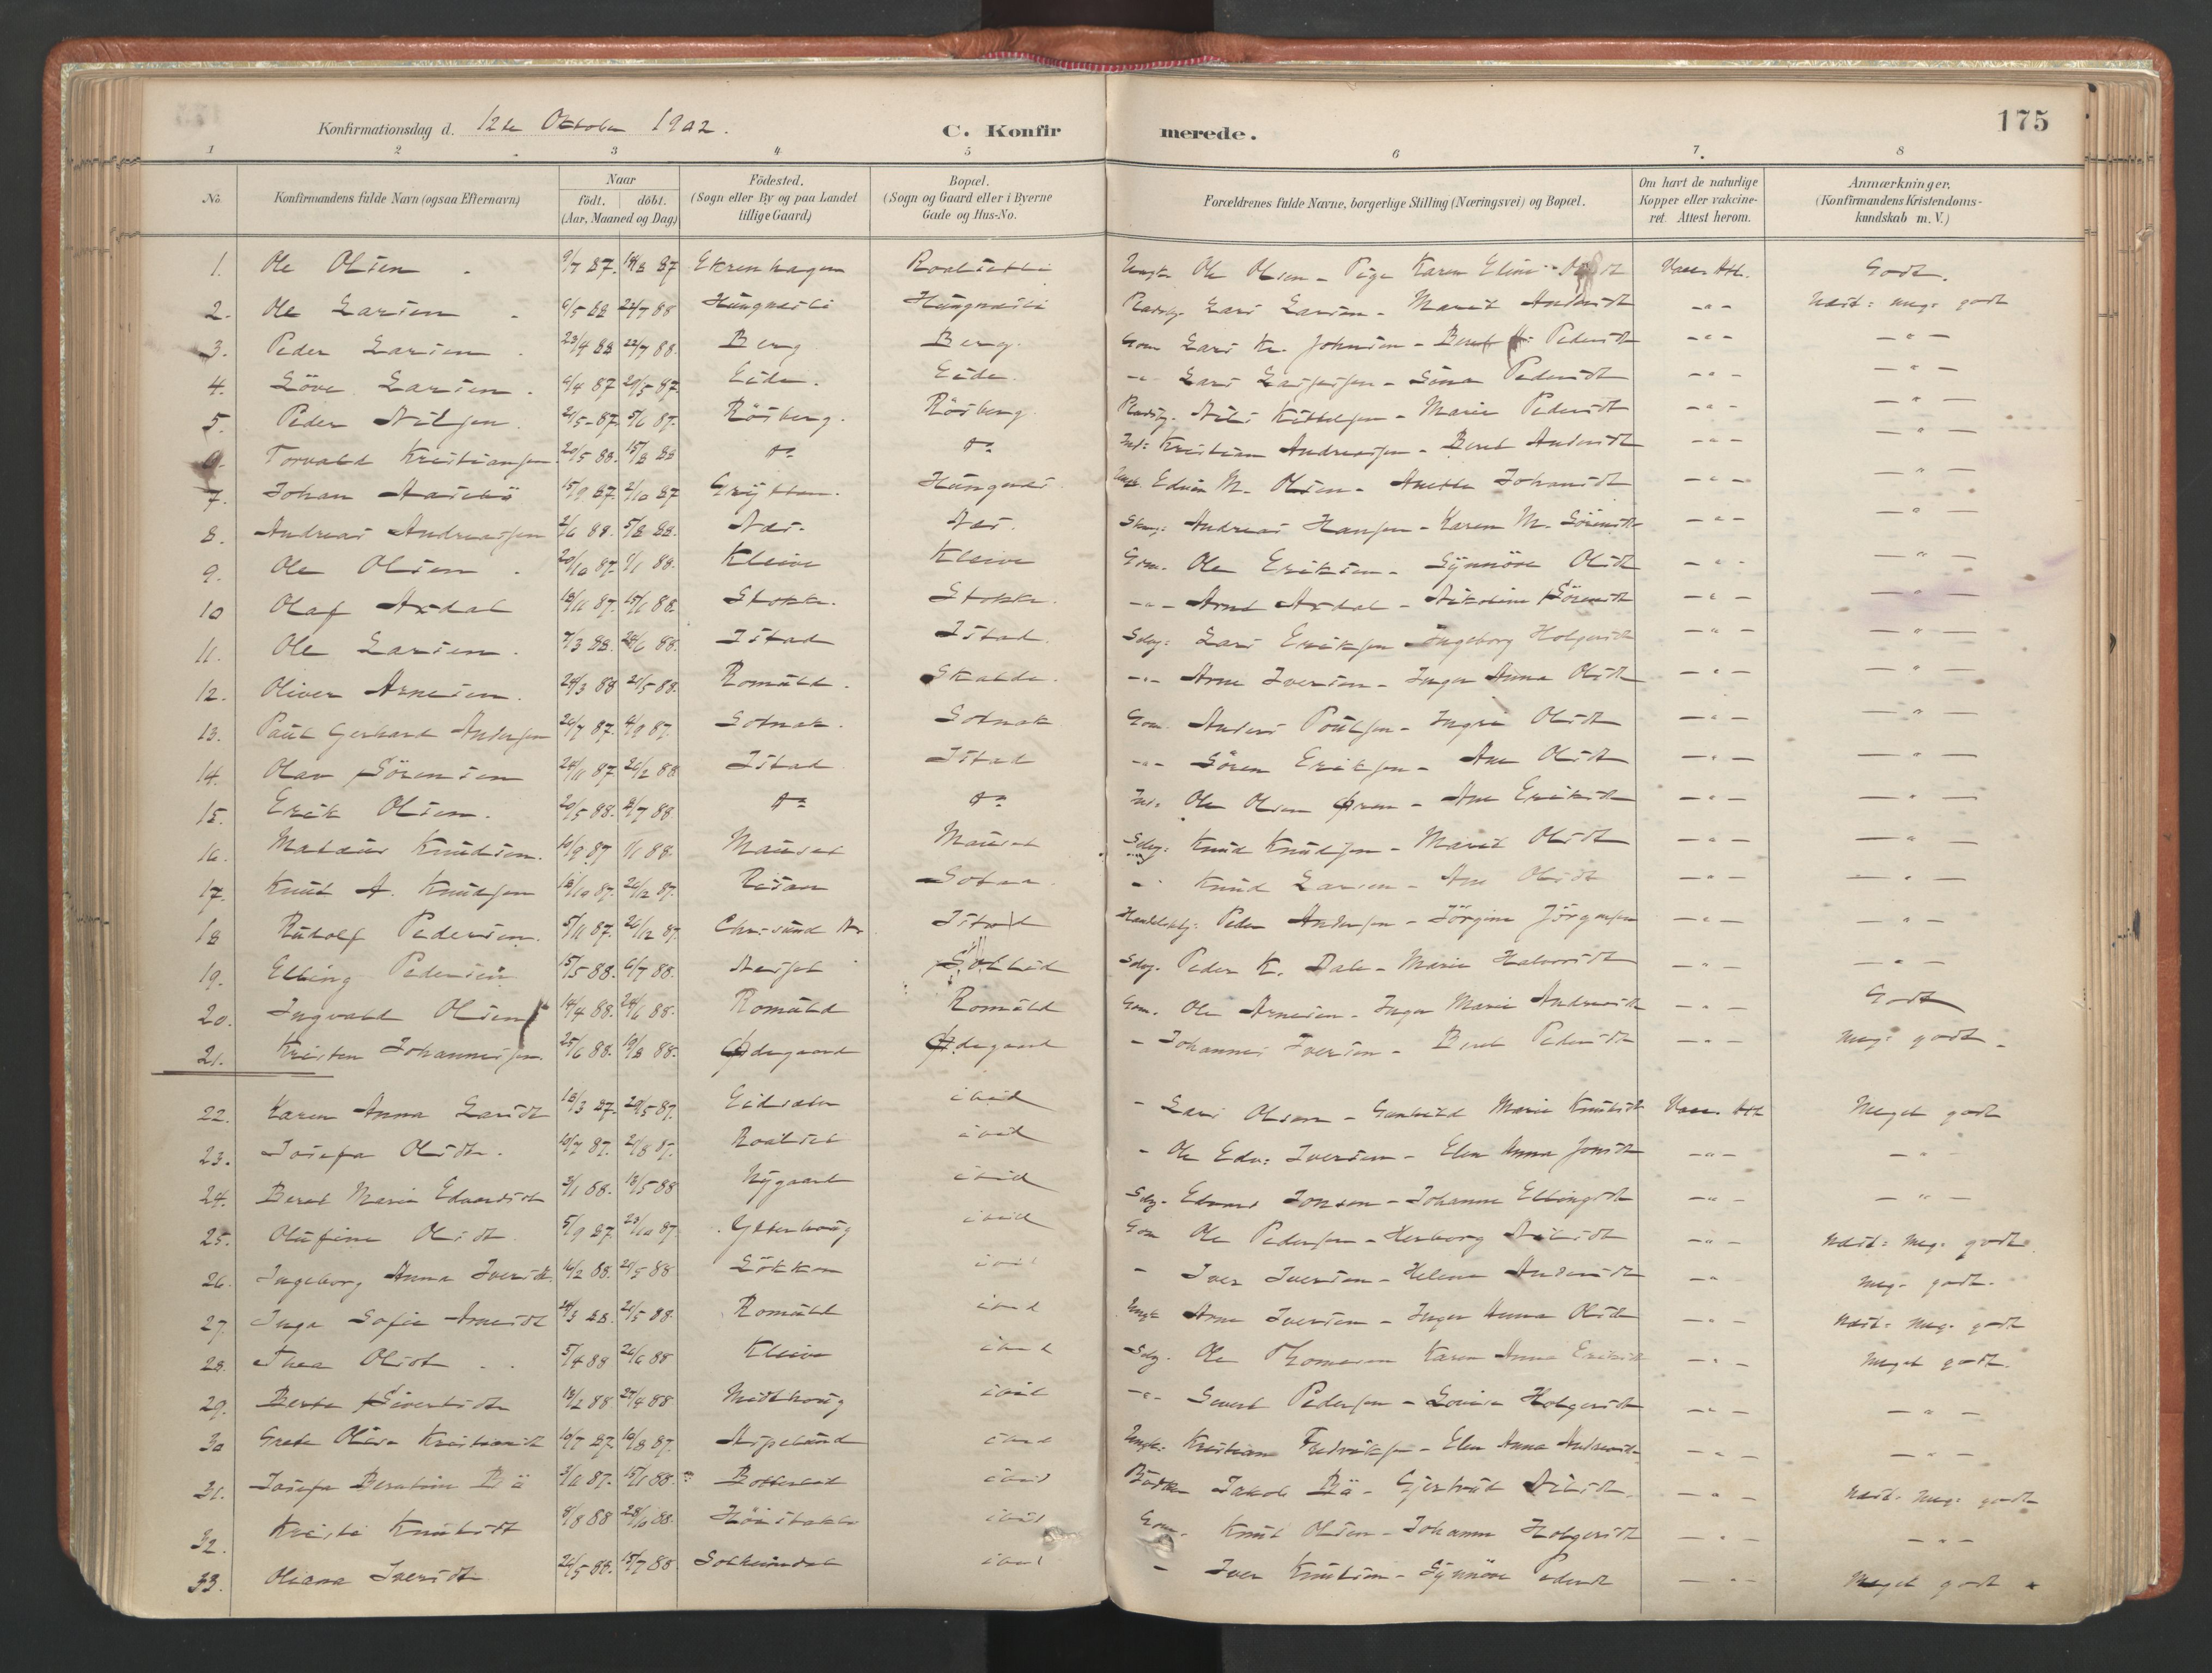 175
Konfirmationsdag d. 12te Oktober 1902. C. Konfirmerede.
1 2 3 4 5 6 7. 8
No. Konfirmandens fulde Navn (ogsaa Efternavn) Naar födt. döbt. (Aar, Maaned og Dag) Födested. (Sogn eller By og paa Landet tillige Gaard) Bopæl. (Sogn og Gaard eller i Byerne Gade og Hus-No. Forældrenes fulde Navne, borgerlige Stilling (Næringsvei) og Bopæl. Om havt de naturlige Kopper eller vakcineret. Attest herom. Anmærkninger. (Konfirmandens Kristendomskundskab m. V.)
1. Ole Olsen 9/7 87. 14/8 87 Ekrenhagen Roaldsetli Ungk. Ole Olsen - Pige Karen Eline Vacc. Att. Godt.
2. Ole Larsen 6/5 88 22/7 88 Hungnesli Hungnesli Lars Larsen - Marit Andersdt -"- Næst: meg: godt
3. Peder Larsen 23/4 88 22/7 88. Berg Berg. Gom Lars Kr. Johnsen - Beret Pedersdt -"- -"-
4. Löve Larsen 6/4 87 29/5 87. Eide. Eide. -"- Lars - Pedersdt -"- -"-
5. Peder Nilsen 21/5 87. 5/6 87. Rösberg. Rösberg. Nils Kittelsen - Marie Pedersdt -"- -"-
6. Torvald Kristiansen 20/5 88. 15/8 88 do do Ind: Kristian Andreassen - Beret Andersdt -"- -"-
7. Johan Aasebö 15/9 87 2/10 87 Grytten. Hungnes. Ungk. Edvin M. Olsen - Anetta Johansdt -"- -"-
8. Andreas Andreassen 2/6 88. 5/8 88. Næs. Næs. Andreas Hansen - Karen M. Sörensdt -"- -"-
9. Ole Olsen 20/10 87. 1/1 88. Kleive Kleive Gom. Ole Eriksen - Synnöve Olsdt -"- -"-
10 Olaf Axdal 18/11 87. 15/1 88 Stokke. Stokke. -"- Arne Axdal - Nikoline Sörensdt -"- -"-
11. Ole Larsen. 7/3 88. 24/6 88. Istad Istad. Sdbg: Lars Eriksen Ingeborg Holgersdt -"- -"-
12. Oliver Arnesen. 24/3 88 21/5 88. Romuld. Skalde. -"- Arne Iversen - Inger Anna Olsdt -"- -"-
13. Paul Gerhard Andersen 26/7 87. 4/9 87. Solnæs. Solnæs Gom. Anders Poulsen - Ingri Olsdt -"- -"-
14. Olav Sörensen 24/11 87 26/2 88 Istad Istad -"- Sören Eriksen - Ane Olsdt -"- -"-
15. Erik Olsen. 20/5 88. 8/7 88. do do Ind: Ole Olsen - Ane Eriksdt -"- -"-
16. Mataus Knudsen. 10/9 87 1/1 88. Mauset Mauset Sdbg: Knud Knudsen - Marit Olsdt -"- -"-
17. Knut A. Knudsen 18/10 87. 26/12 87. - Knud Larsen - Ane Olsdt -"- -"-
18 Rudolf Pedersen. 5/11 87. 26/12 87. Chr:sund N. Istad Handelsbtj: Peder Andersen - Jörgine Jörgensen -"- -"-
19. Elling Pedersen 15/5 88. 6/7 88. Sdbg. Peder K. Dale - Marie Halvorsdt -"- -"-
20. Ingvald Olsen 14/4 88. 24/6 88. Romuld Romuld Gom. Ole Arnesen - Inger Marie Andreasdt -"- Godt
21. Kristen Johannessen. 25/6 88. 19/8 88. Ødegaard Ødegaard - Johannes Iversen - Beret Pedersdt -"- Meg: godt.
22. Karen Anna Larsdt 18/3 87. 29/5 87. Eidsæter ibid - Lars Olsen - Gunhild Marie Knutsdt Vacc. Att Meget godt
23. Josefa Olsdt. 10/7 87. 21/8 87. Roaldset ibid - Ole Edv: Iversen - Elen Anna Jonsdt -"- -"-
24. Beret Marie Edvardsdt 3/1 88. 18/5 88 Nygaard ibid Sdbg. Edvard Jonsen - Johanne Ellingsdt -"- -"-
25. Olufine Olsdt 5/9 87. 23/10 87. Ytterhaug ibid Gom Ole Pedersen - Herborg Nilsdt -"- Næst: Meg. godt.
26. Ingeborg Anna Iversdt. 16/2 88. 21/5 88 Lökken ibid - Iver Iversen - Helene Andersdt -"- Meg. godt.
27. Inga Sofie Arnesdt 24/3 88. 21/5 88. Romuld ibid Ungk Arne Iversen - Inger Anna Olsdt -"- Næst: Meg. godt
28. Thea Olsdt 5/4 88 26/6 88 Kleive ibid Sdbg. Ole Thomassen Karen Anna Eriksdt -"- Meget godt.
29. Berte Sivertsdt 18/2 88 27/4 88 Midthaug ibid -"- Sivert Pedersen - Lovise Holgersdt -"- -"-
30 Grete Olise Kristiansdt 10/7 87 14/8 87. Aspelund ibid Ungk: Kristian Fredriksen - Elen Anna Andreasdt. -"- -"-
31. Josefa Berntine Bö 3/11 87. 15/1 88. Bolstad ibid Jakob Bö - Gjertrud Nilsdt. -"- Næst. Meg: godt
32. Kristi Knutsdt 8/8 88 28/6 88. ibid Gom. Knut Olsen - Johanne Holgersdt -"- -"-
33. Oliana Iversdt 26/5 88. 15/7 88 ibid - Iver Knutsen - Synnöve Pedersdt -"- Meget godt